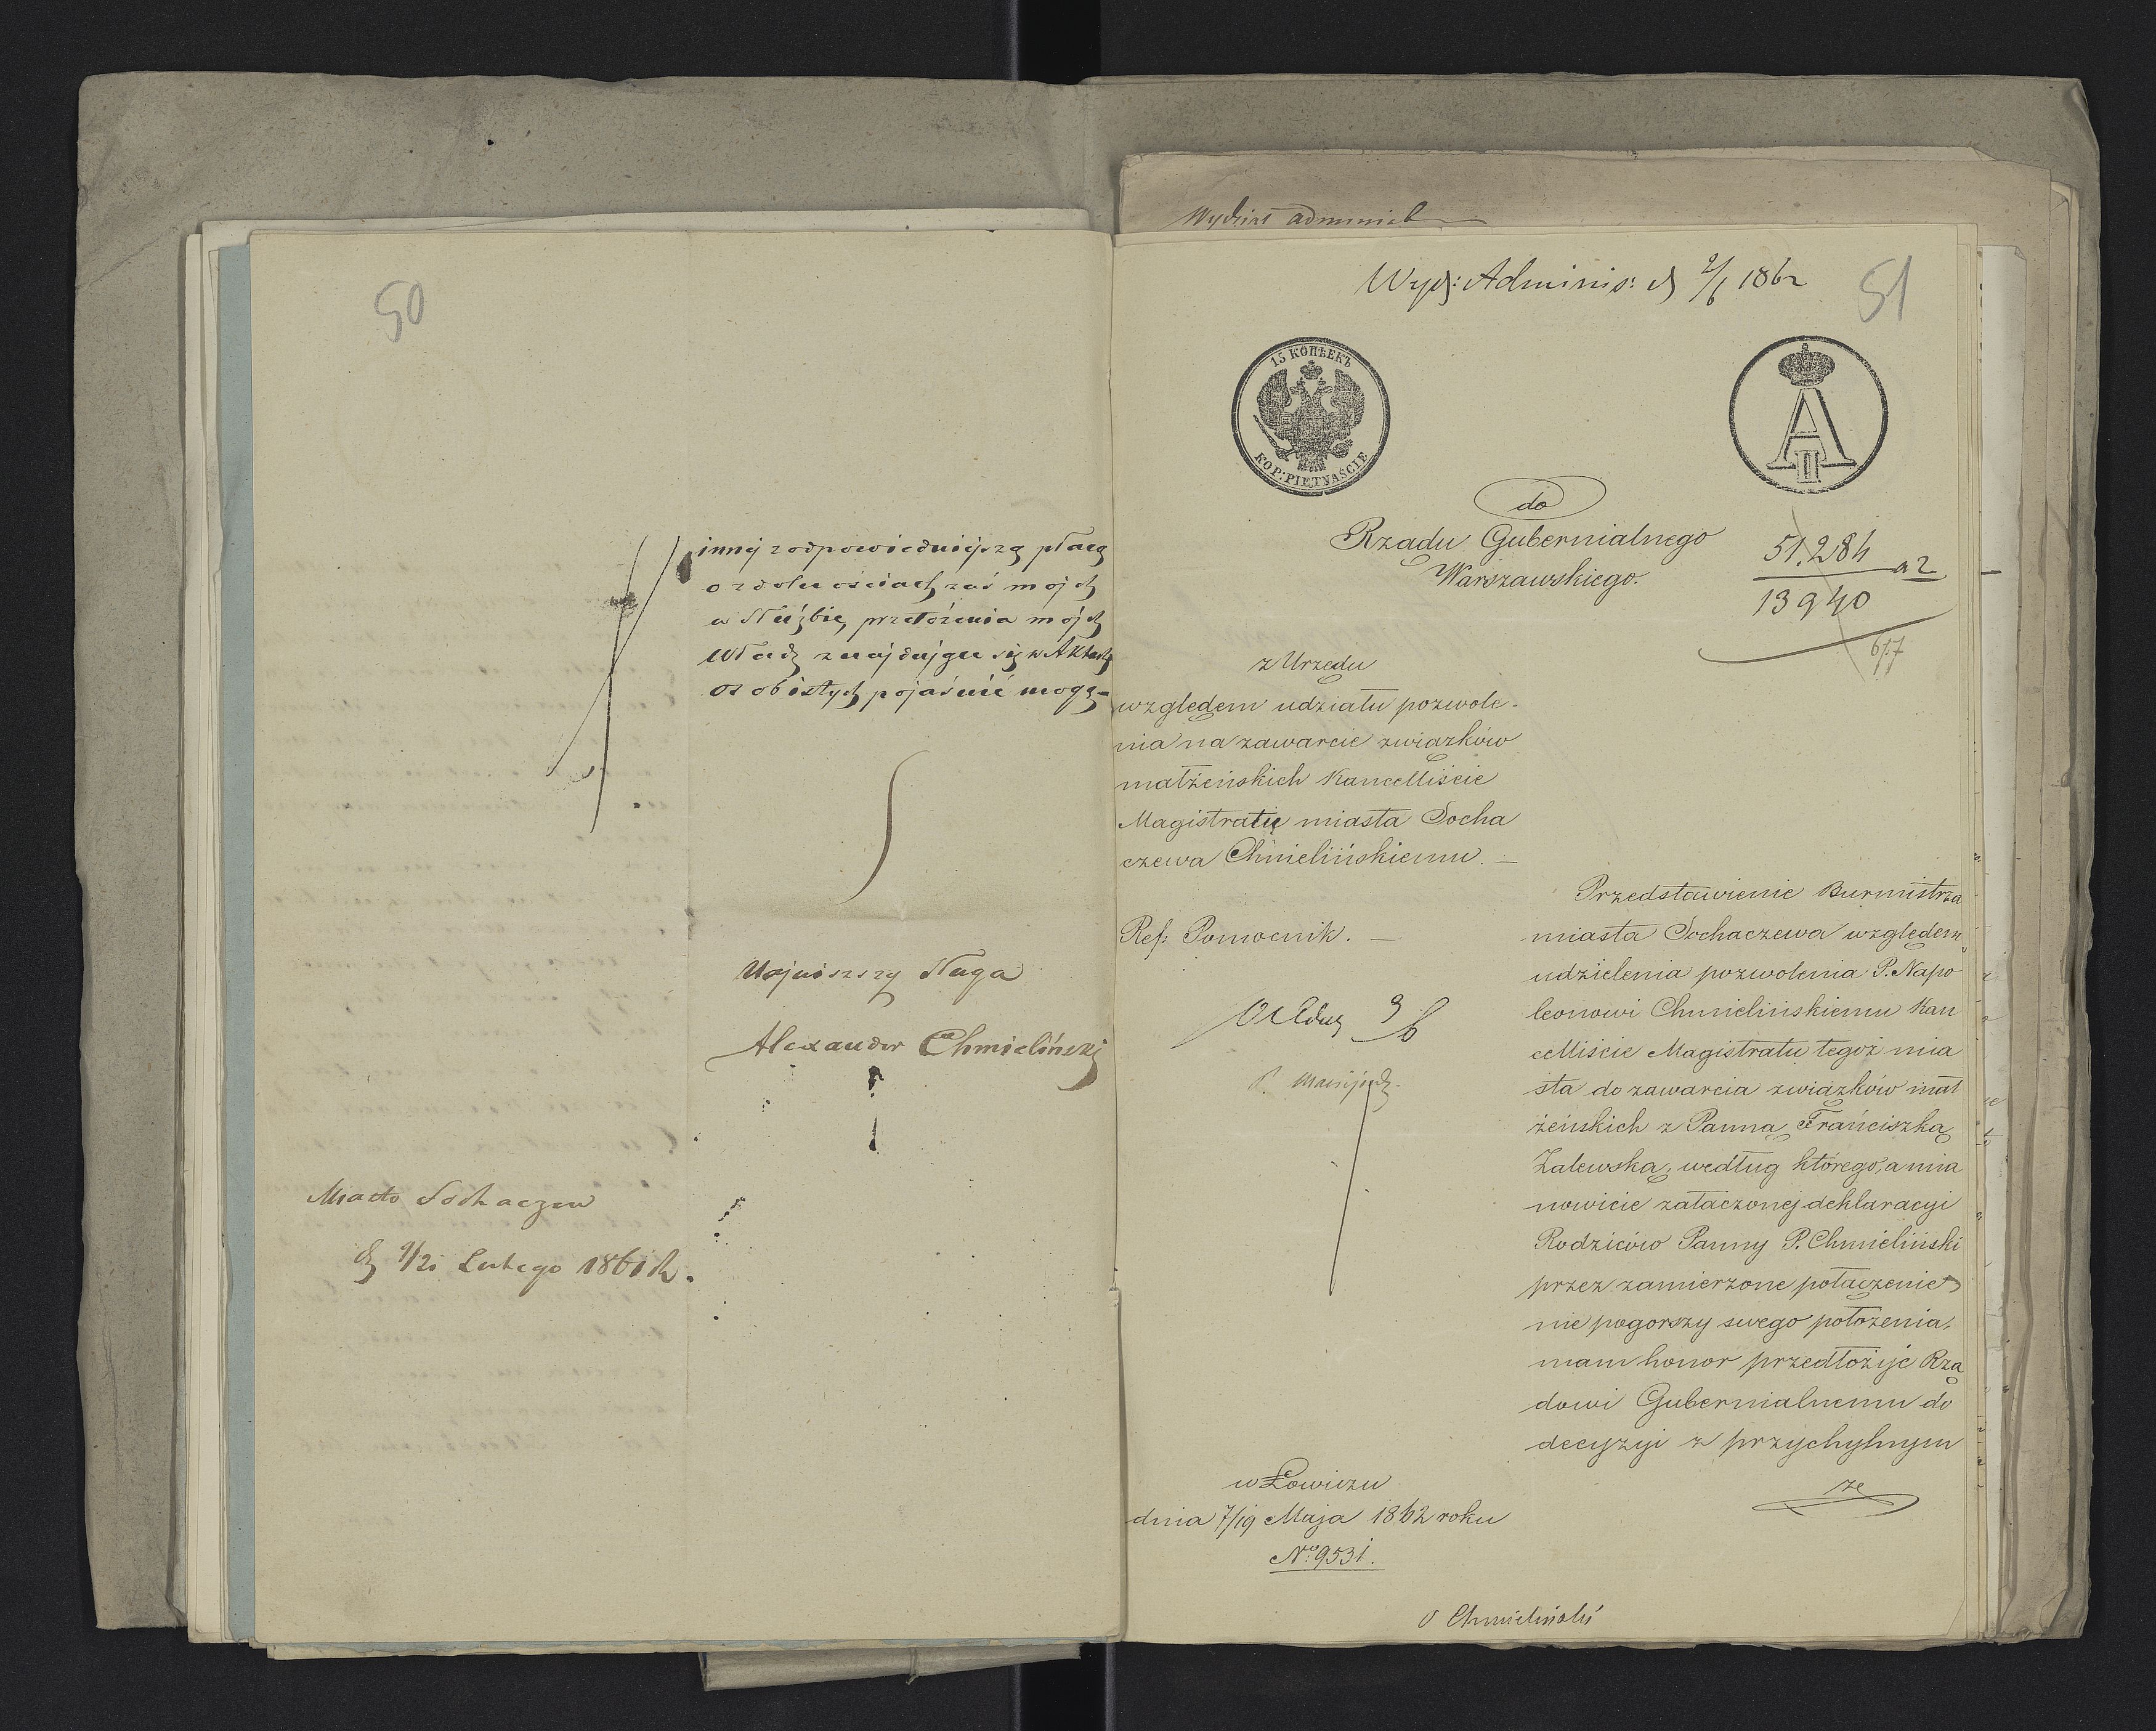 50
innej z odpowiedniejszą płacą
o zdolnościach zaś mojch
w Służbie, przełożenia mójch
Władz znajdujące się w Aktach
osobistych pojaśnić mogą –
Najniższy Sługa
Alexander Chmieliński
Miasto Sochaczew
d. 9/21 Lutego 1861 R.
Wydział administ
Wydz: Adminis: d 2/6 1862
51
15 КОПѢЕКЪ
KOP: PIĘTNAŚCIE
A II
do
Rządu Gubernialnego
Warszawskiego.
51,284 a2
13940
6/7
z Urzędu
względem udziału pozwole-
nia na zawarcie związków
małżeńskich Kancelliście
Magistratu miasta Socha
czewa Chmielińskiemu. –
Ref: Pomocnik. –
9/6
Przedstawienie Burmistrza
miasta Sochaczewa względem
udzielenia pozwolenia P. Napo
leonowi Chmielińskiemu Kan
celliście Magistratu tegoż mia
sta do zawarcia związków mał
żeńskich z Panną Franciszką
Zalewską, według którego, a mia
nowicie załączonej deklaracyi
Rodziców Panny P. Chmieliński
przez zamierzone połączenie
nie pogorszy swego położenia,
mam honor przedłożyć Rzą
dowi Gubernialnemu do
decyzyi z przychylnym
ze
w Łowiczu
dnia 7/19 Maja 1862 roku
No: 9531.
O Chmieliński